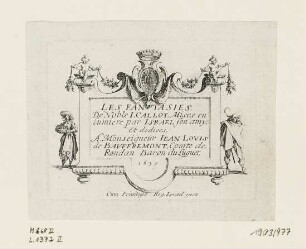 LES FANTAISIES
De Noble I. CALLOT. Mises en
lumiere par ISRAEL son amy.
Et dediees.
A Monseigneur IEAN LOVIS
de BAVFFREMONT. Comte de
Randan Baron du Luguet.
1635
Cum Privilegio Reg. Israel excu.
L.1372 II
1903/977